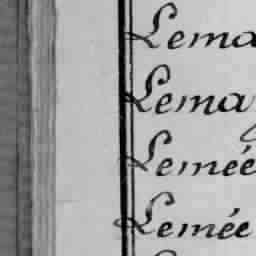 Lema
Lema
Lemée
Lemée